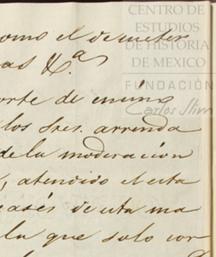 CENTRO DE
ESTUDIOS
DE HISTORIA
DE MÉXICO
FUNDACIÓN
Carlos Slim
como el de meter
as &.ª
orte de
los Sres. arrenda
de la moderación
, atendido el esta
de esta ma
la que solo cor